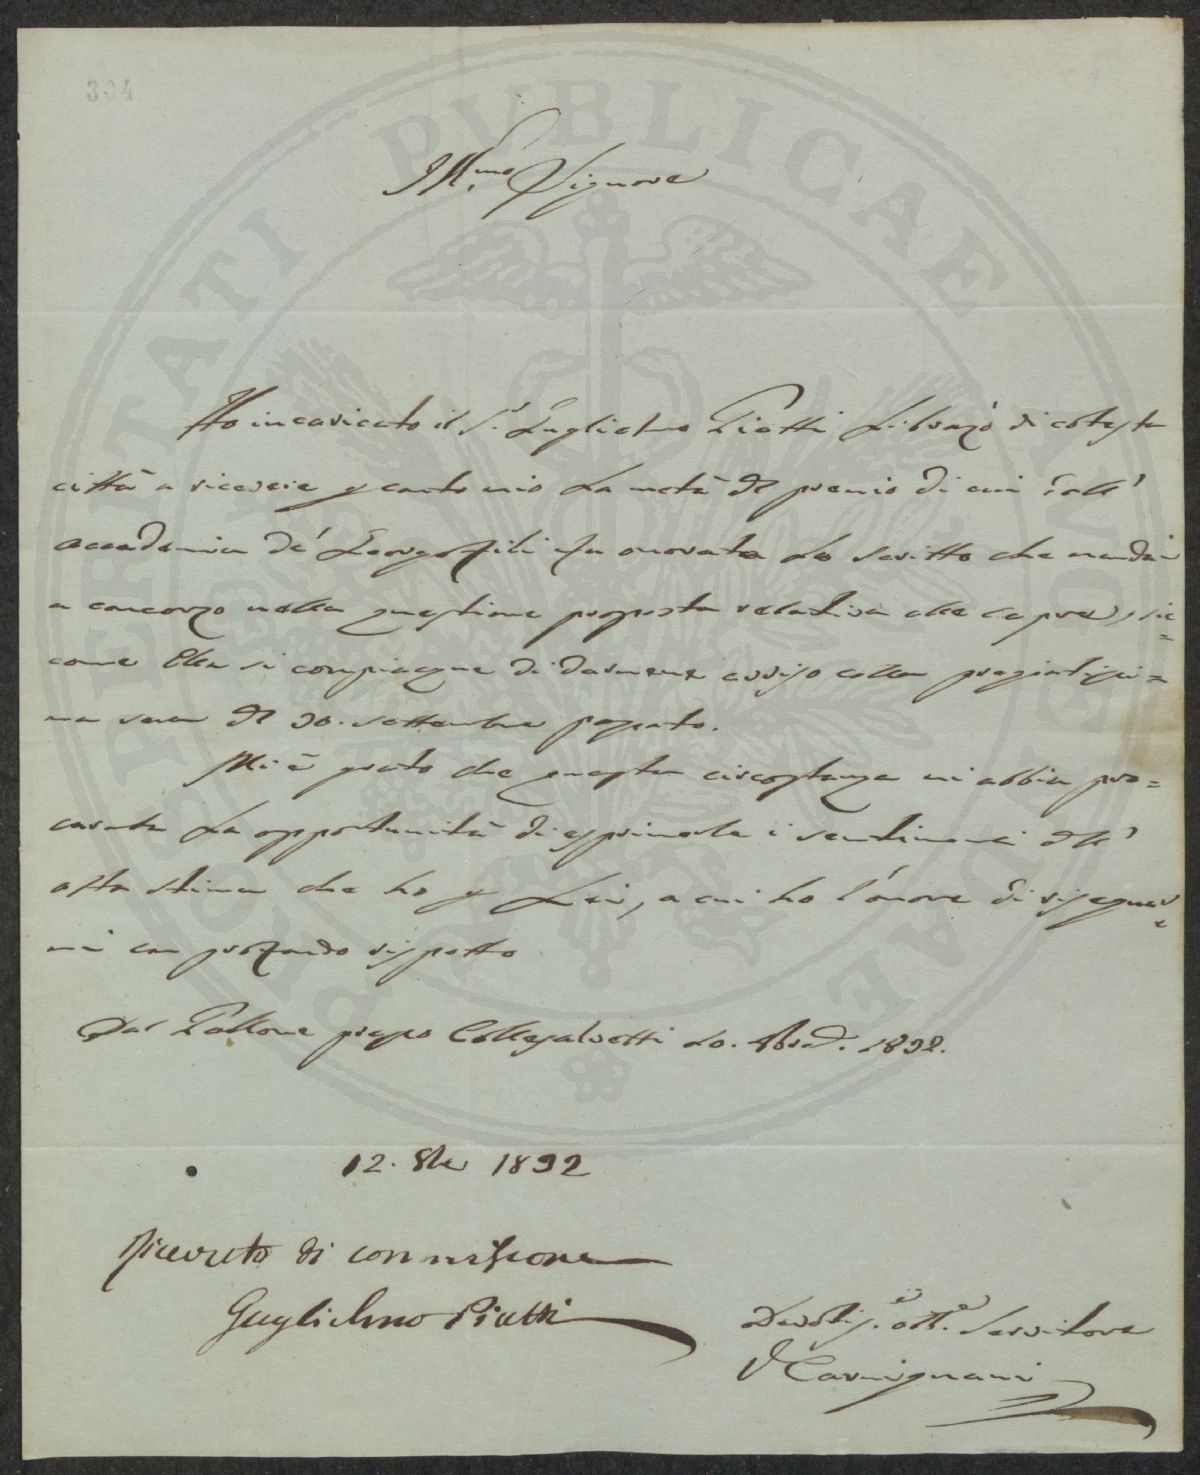 304
PROSPERITATI PUBLICAE AUGENDAE
Ill.mo Signore
Ho incaricato il S.r Guglielmo Piatti Librajo di cotesta
città a ricevere p conto mio la metà del premio di cui dall'
Accademia de' Georgofili fu onorata lo scritto che mandai
a concorso nella questione proposta relativa alle capre, sic=
come Ella si compiacque di darmene avviso colla pregiatissi=
ma sua del 30. settembre passato.
Mi è grato che questa circostanza mi abbia pro=
curata la opportunità di esprimerle i sentimenti dell'
alta stima che ho p Lei, a cui ho l'onore di rassegnar=
mi con profondo rispetto
Dal Pallone presso Collesalvetti 10. 1832.
12. 1832
Ricevuto di commissione
Guglielmo Piatti
Devotis.o obb.o Servitore
Carmignani